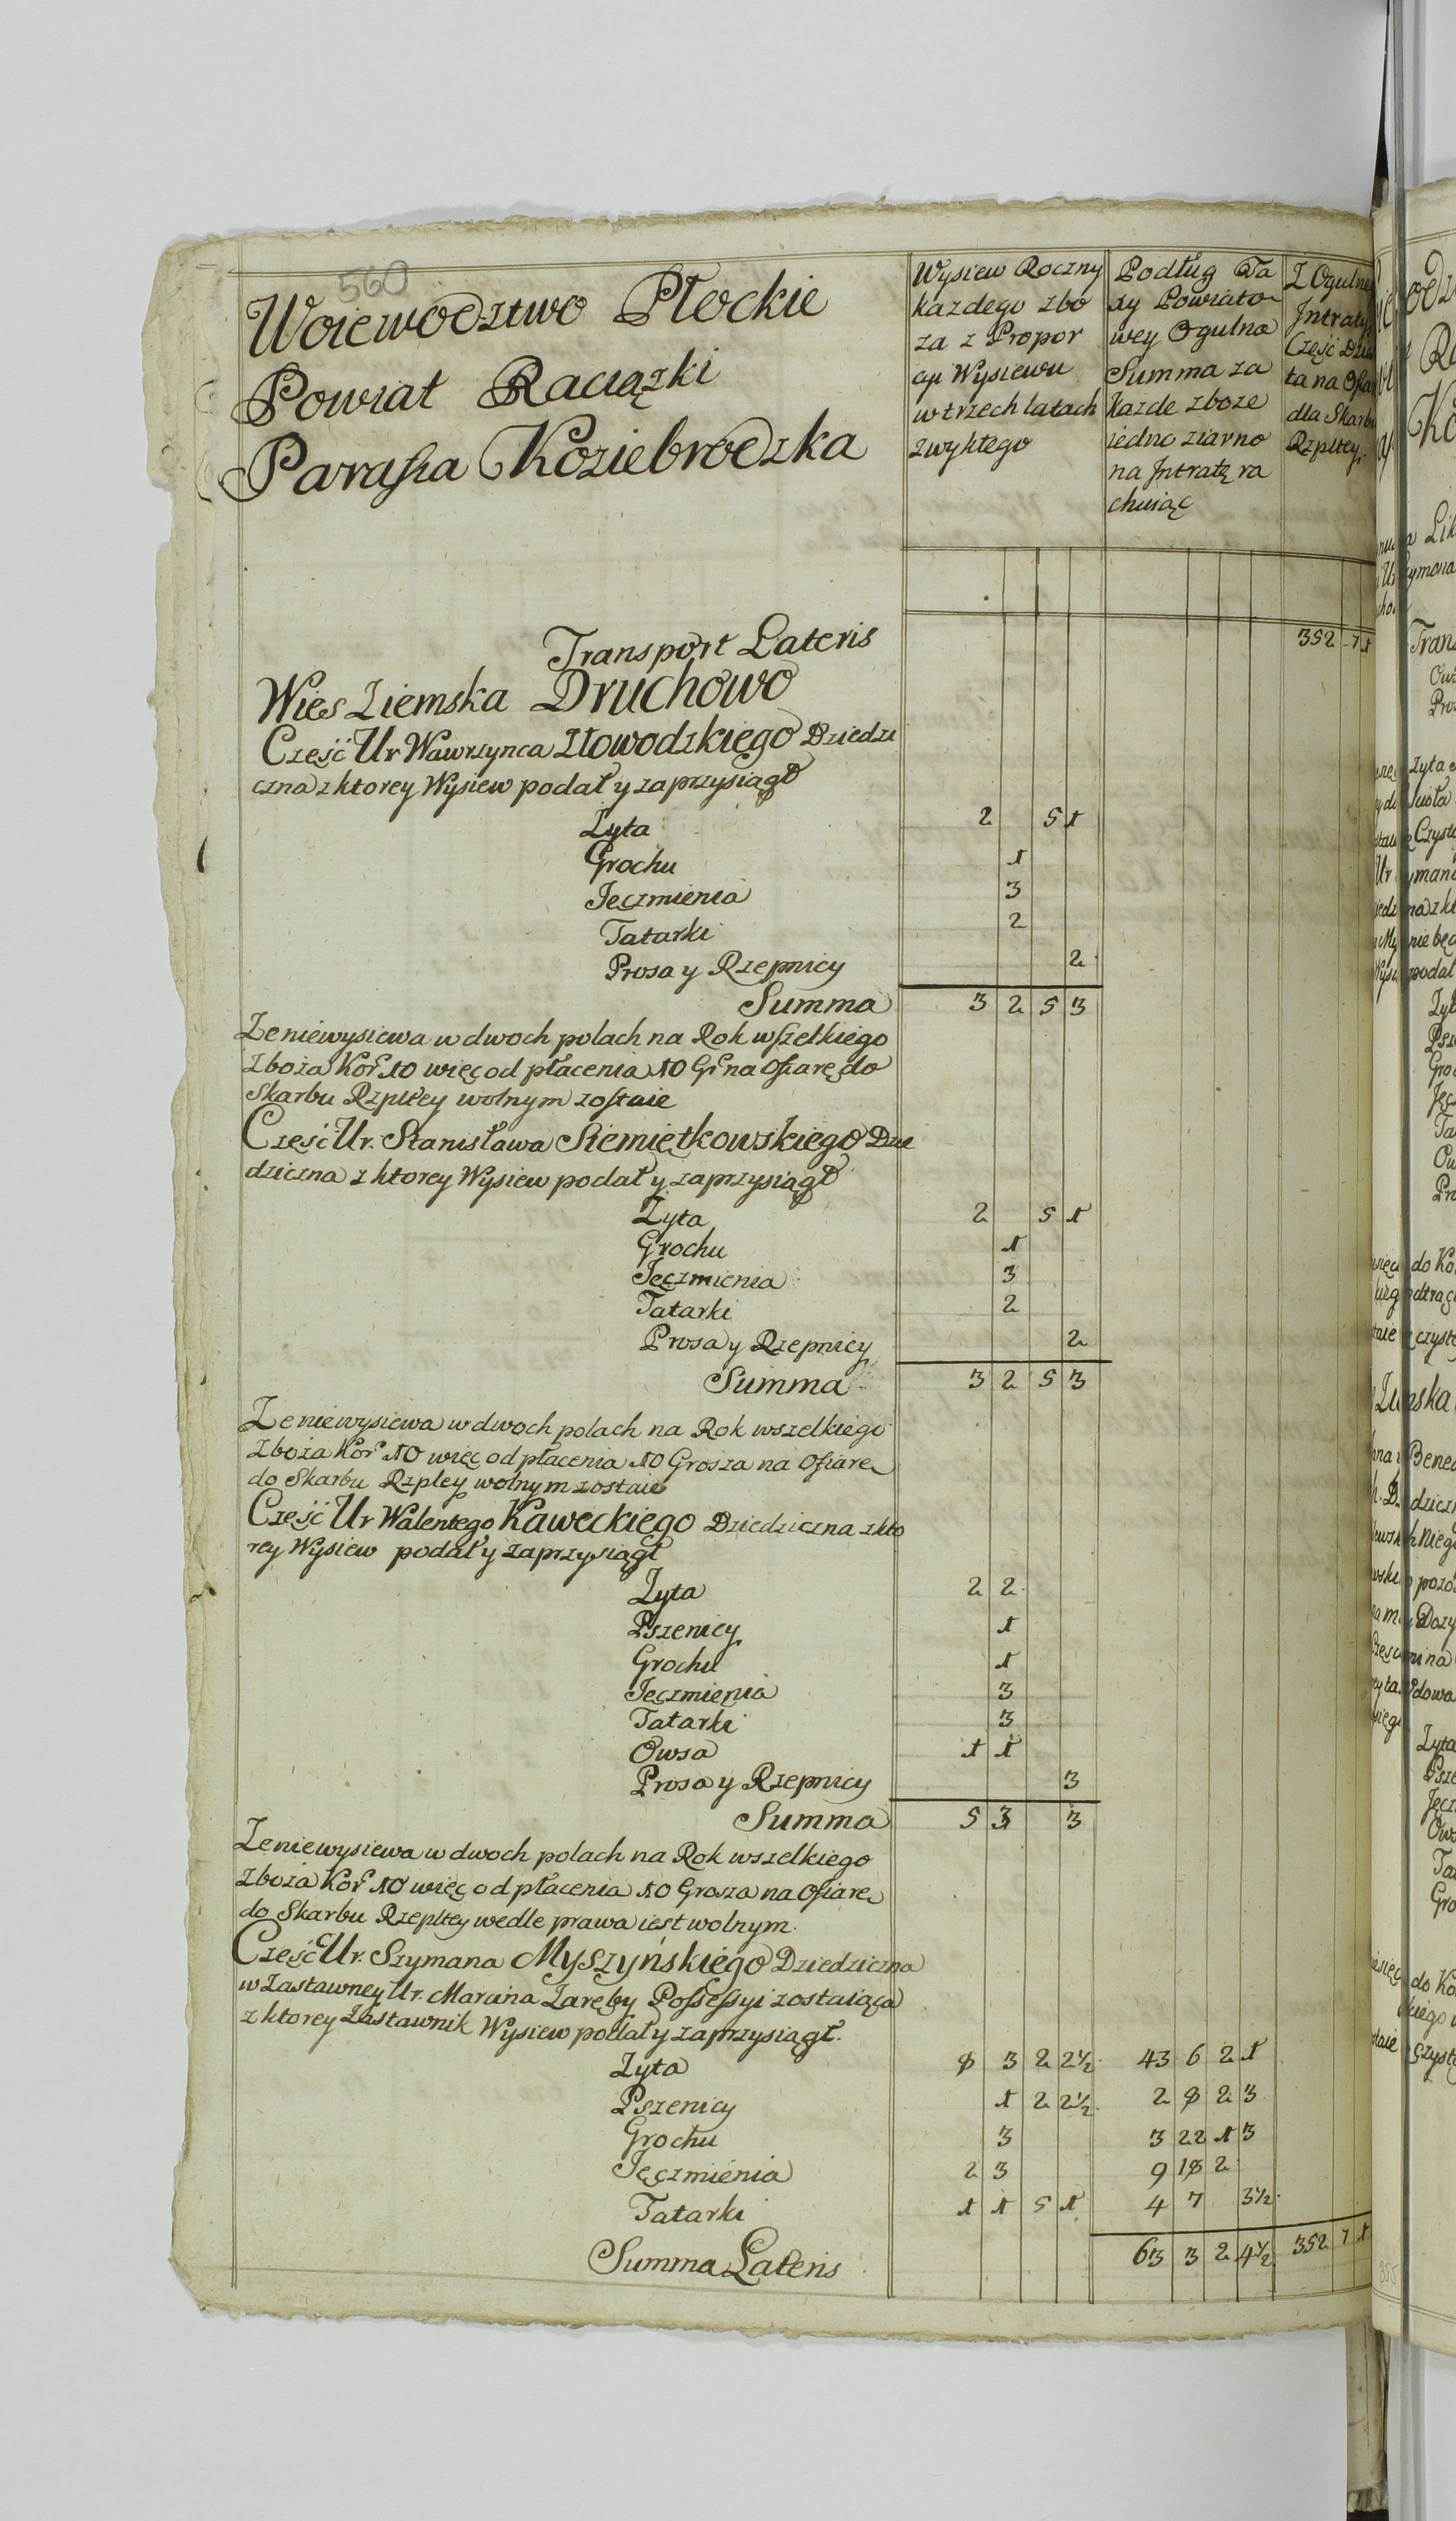 560
Woiewodztwo Płockie
Powiat Raciązki
Parafia Koziebrodzka
Wysiew Roczny
kazdego zbo
za z Propor
cyi Wysiewu
w trzech latach
zwykłego
Podług Ta
xy Powiato
wey Ogulna
Summa za
kazde zboze
iedno ziarno
na Jntratę ra
chuiąc
Z Ogulney
Jntraty
Część Dzie
ta na Ofia
dla Skarbu
Rzpltey
Transport Lateris 352 7 1
Wies Ziemska Druchowo
Część Ur Wawrzynca Złowodzkiego Dziedzi
czna z ktorey Wysiew podał y zaprzysiągł
Zyta 2 5 1
Grochu 1
Jęczmienia 3
Tatarki 2
Prosa y Rzepnicy 2
Summa 3 2 5 3
Ze niewysiewa w dwoch polach na Rok wszelkiego
Zboża Kor. 10 więc od płacenia 10 Gr. na Ofiarę do
Skarbu Rzpltey wolnym zostaie
Część Ur. Stanisława Siemiętkowskiego Dzie
dziczna z ktorey Wysiew podał y zaprzysiągł
Zyta 2 5 1
Grochu 1
Jęczmienia 3
Tatarki 2
Prosa y Rzepnicy 2
Summa 3 2 5 3
Ze niewysiewa w dwoch polach na Rok wszelkiego
Zboża Kor. 10 więc od płacenia 10 Grosza na Ofiare
do Skarbu Rzpley wolnym zostaie
Część Ur Walentego Kaweckiego Dziedziczna z kto
rey Wysiew podał y zaprzysiągł
Zyta 2 2
Pszenicy 1
Grochu 1
Jęczmienia 3
Tatarki 3
Owsa 1 1
Prosa y Rzepnicy 3
Summa 5 3 3
Ze niewysiewa w dwoch polach na Rok wszelkiego
Zboża Kor. 10 więc od płacenia 10 Grosza na Ofiare
do Skarbu Rzepltey wedle prawa iest wolnym.
Część Ur. Szymana Myszyńskiego Dziedziczna
w Zastawney Ur. Marcina Zaręby Possessyi zostaiąca
z ktorey Zastawnik Wysiew podał y zaprzysiągł.
Zyta 8 3 2 2½ 43 6 2 1
Pszenicy 1 2 2½ 2 8 2 3
Grochu 3 3 22 1 3
Jęczmienia 2 3 9 18 2
Tatarki 1 1 5 1 4 7 3½
Summa Lateris 63 3 2 4½ 352 7 1